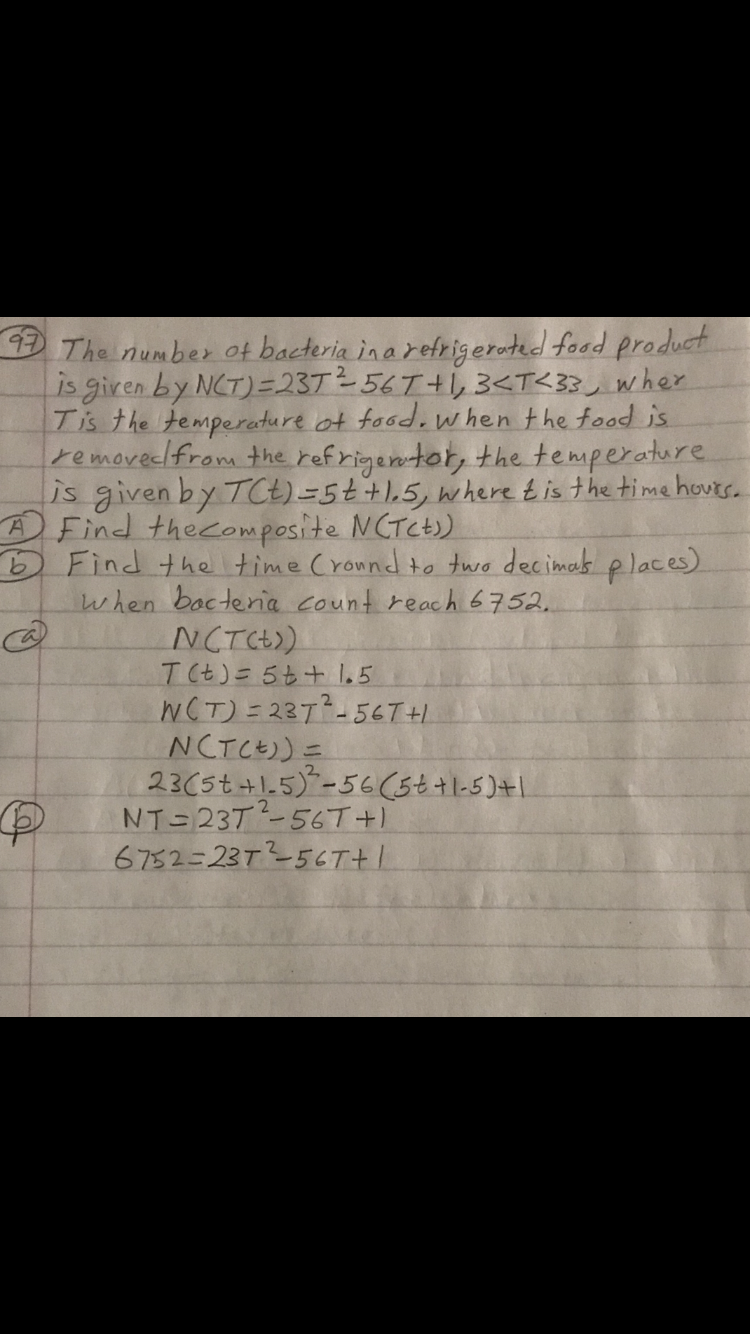 97 The number of bacteria in a refrigerated food product
is given by N(T)=23T²-56T+1, 3<T<33, wher
T is the temperature of food. When the food is
removed from the refrigerator, the temperature
is given by T(t)=5t+1.5, where t is the time hours.
A Find the composite N(T(t))
b Find the time (round to two decimals places)
when bacteria count reach 6752.
a N(T(t))
T(t)=5t+1.5
N(T)=23T²-56T+1
N(T(t))=
23(5t+1.5)²-56(5t+1.5)+1
b NT=23T²-56T+1
6752=23T²-56T+1